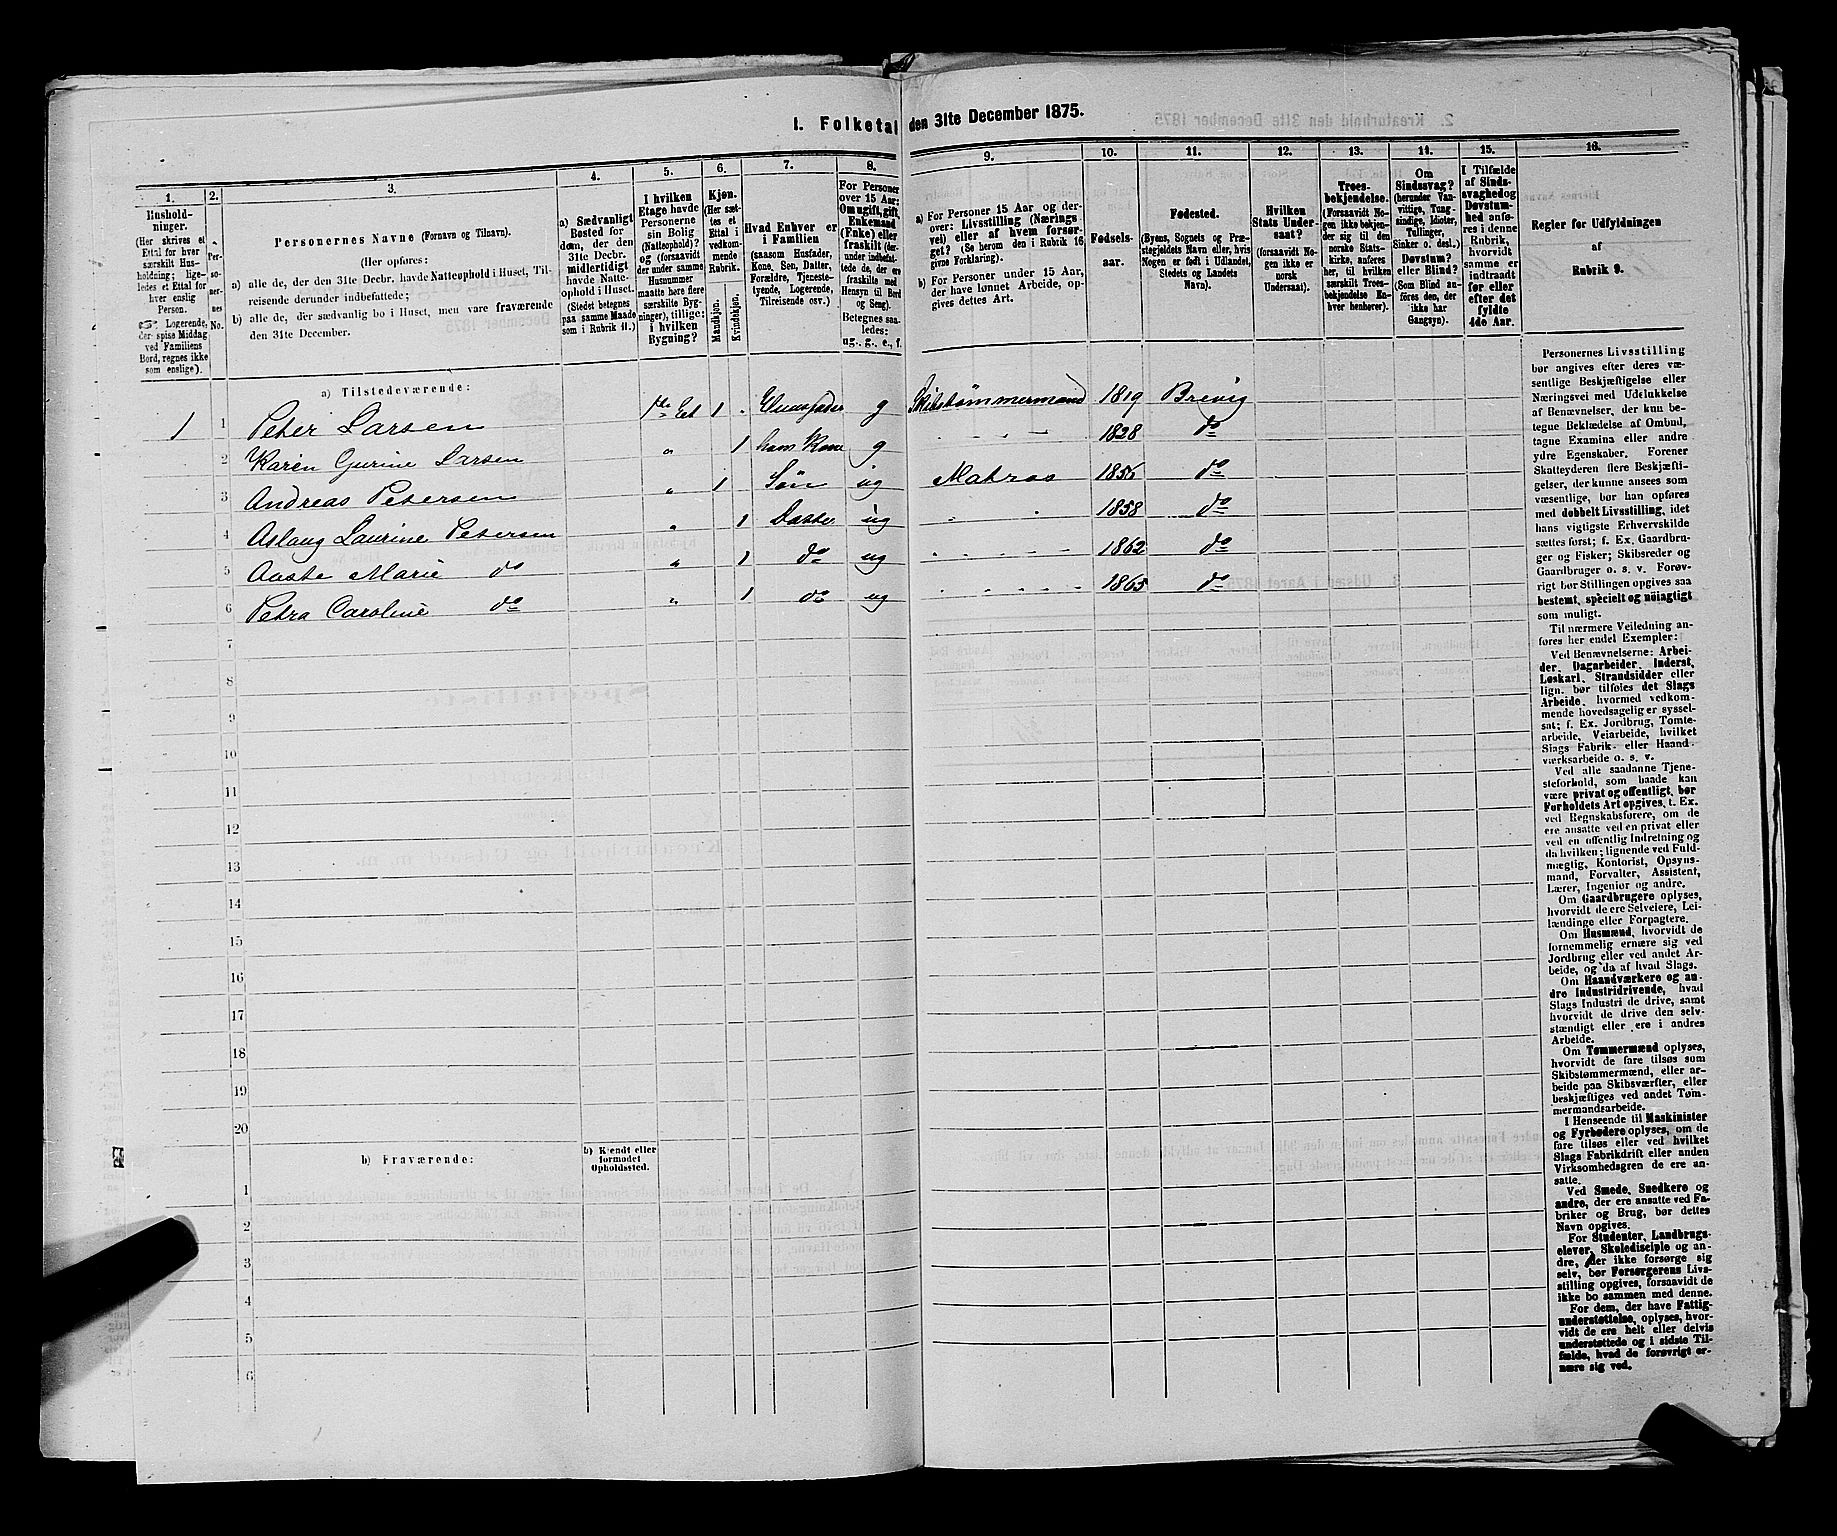 1. Folketal den 31te December 1875.
1.
Hushold-
ninger.
(Her skrives et
Ettal for hver
særskilt Hus-
holdning; lige-
ledes et Ettal for
hver enslig
Person.
Logerende,
der spise Middag
ved Familiens
Bord, regnes ikke
som enslige).
2.
Per-
so-
ner-
nes
No.
3.
Personernes Navne (Fornavn og Tilnavn).
(Her opføres:
a) alle de, der den 31te Decbr. havde Natteophold i Huset, Til-
reisende derunder indbefattede;
b) alle de, der sædvanlig bo i Huset, men vare fraværende
den 31te December.
4.
a) Sædvanligt
Bosted for
dem, der den
31te Decbr.
midlertidigt
havde Natte-
ophold i Huset.
(Stedet betegnes
paa samme Maade
som i Rubrik 11.)
5.
I hvilken
Etage havde
Personerne
sin Bolig
(Natteophold)?
og (forsaavidt
der under samme
Husnummer
maatte høre flere
særskilte Byg-
ninger), tillige:
i hvilken
Bygning?
6.
Kjøn.
(Her sæt-
tes et
Ettal i
vedkom-
mende
Rubrik.
Mandkjøn.
Kvindekjøn.
7.
Hvad Enhver er
i Familien
(saasom Husfader,
Kone, Søn, Datter,
Forældre, Tjeneste-
tyende, Logerende,
Tilreisende osv.)
8.
For Personer
over 15 Aar:
Om ugift, gift,
Enkemand
(Enke) eller
fraskilt (der-
under indbefat-
tede de, der ere
fraskilte med
Hensyn til Bord
og Seng).
Betegnes saa-
ledes:
ug., g., e., f.
9.
a) For Personer 15 Aar og der-
over: Livsstilling (Nærings-
vei) eller af hvem forsør-
get? (Se herom den i Rubrik 16
givne Forklaring).
b) For Personer under 15 Aar,
der have lønnet Arbeide, op-
gives dettes Art.
10.
Fødsels-
aar.
11.
Fødested.
(Byens, Sognets og Præ-
stegjeldets Navn eller, hvis
Nogen er født i Udlandet,
Stedets og Landets
Navn).
12.
Hvilken
Stats Under-
saat?
(forsaavidt No-
gen ikke er
norsk
Undersaat).
13.
Troes-
bekjendelse.
(Forsaavidt No-
gen ikke bekjen-
der sig til den
norske Stats-
kirke, anføres
her, til hvilken
særskilt Troes-
bekjendelse En-
hver henhører).
14.
Om
Sindssvag?
(herunder Van-
vittige, Tung-
sindige, Idioter,
Tullinger,
Sinker o. desl.)
Døvstum?
eller Blind?
(Som Blind an-
føres den, der
ikke har
Gangsyn).
15.
I Tilfælde
af Sinds-
svaghed og
Døvstum-
hed anfø-
res i denne
Rubrik,
hvorvidt
samme er
indtraadt
før eller
efter det
fyldte
4de Aar.
16.
Regler for Udfyldningen
af
Rubrik 9.
a) Tilstedeværende:
1 1 Peter Larsen 1ste Et 1 . Huusfader g Skibstømmermand 1819 Brevig
2 Karen Gurine Larsen " 1 hans Kone g 1828 do
3 Andreas Petersen " 1 Søn ug Matros 1856 do
4 Aslaug Laurine Petersen " 1 Datte ug 1858 do
5 Aaste Marie do " 1 do ug 1862 do
6 Petra Caroline do " 1 do ug 1865 do
7
8
9
10
11
12
13
14
15
16
17
18
19
20
b) Fraværende:
b) Kjendt eller
formodet
Opholdssted.
1
2
3
4
5
6
Personernes Livsstilling
bør angives efter deres væ-
sentlige Beskjæftigelse eller
Næringsvei med Udelukkelse
af Benævnelser, der kun be-
tegne Beklædelse af Ombud,
tagne Examina eller andre
ydre Egenskaber. Forener
Skatteyderen flere Beskjæfti-
gelser, der kunne ansees som
væsentlige, bør han opføres
med dobbelt Livsstilling, idet
hans vigtigste Erhvervskilde
sættes først; f. Ex. Gaardbru-
ger og Fisker; Skibsreder og
Gaardbruger o. s. v. Forøv-
rigt bør Stillingen opgives saa
bestemt, specielt og nøiagtigt
som muligt.
Til nærmere Veiledning an-
føres her endel Exempler:
Ved Benævnelserne: Arbei-
der, Dagarbeider, Inderst,
Løskarl, Strandsidder eller
lign. bør tilføies det Slags
Arbeide, hvormed vedkom-
mende hovedsagelig er syssel-
sat; f. Ex. Jordbrug, Tomte-
arbeide, Veiarbeide, hvilket
Slags Fabrik- eller Haand-
værksarbeide o. s. v.
Ved alle saadanne Tjene-
steforhold, som baade kan
være privat og offentligt, bør
Forholdets Art opgives, t. Ex.
ved Regnskabsførere, om de
ere ansatte ved en privat eller
en offentlig Indretning og
da hvilken; lignende ved Fuld-
mægtig, Kontorist, Opsyns-
mand, Forvalter, Assistent,
Lærer, Ingeniør og andre.
Om Gaardbrugere oplyses,
hvorvidt de ere Selveiere, Lei-
lændinge eller Forpagtere.
Om Husmænd, hvorvidt de
fornemmelig ernære sig ved
Jordbrug eller ved andet Ar-
beide, og da af hvad Slags.
Om Haandværkere og an-
dre Industridrivende, hvad
Slags Industri de drive, samt
hvorvidt de drive den selv-
stændigt eller ere i andres
Arbeide.
Om Tømmermænd oplyses,
hvorvidt de fare tilsøs som
Skibstømmermænd, eller ar-
beide paa Skibsværfter, eller
beskjæftiges ved andet Tøm-
mermandsarbeide.
I Henseende til Maskinister
og Fyrbødere oplyses, om de
fare tilsøs eller ved hvilket
Slags Fabrikdrift eller anden
Virksomhedsgren de ere an-
satte.
Ved Smede, Snedkere og
andre, der ere ansatte ved Fa-
briker og Brug, bør dettes
Navn opgives.
For Studenter, Landbrugs-
elever, Skoledisciple og an-
dre, der ikke forsørge sig
selv, bør Forsørgerens Livs-
stilling opgives, forsaavidt de
ikke bo sammen med denne.
For dem, der have Fattig-
understøttelse, oplyses, hvor-
vidt de ere helt eller delvis
understøttede og i sidste Til-
fælde, hvad de forøvrigt er-
nære sig ved.